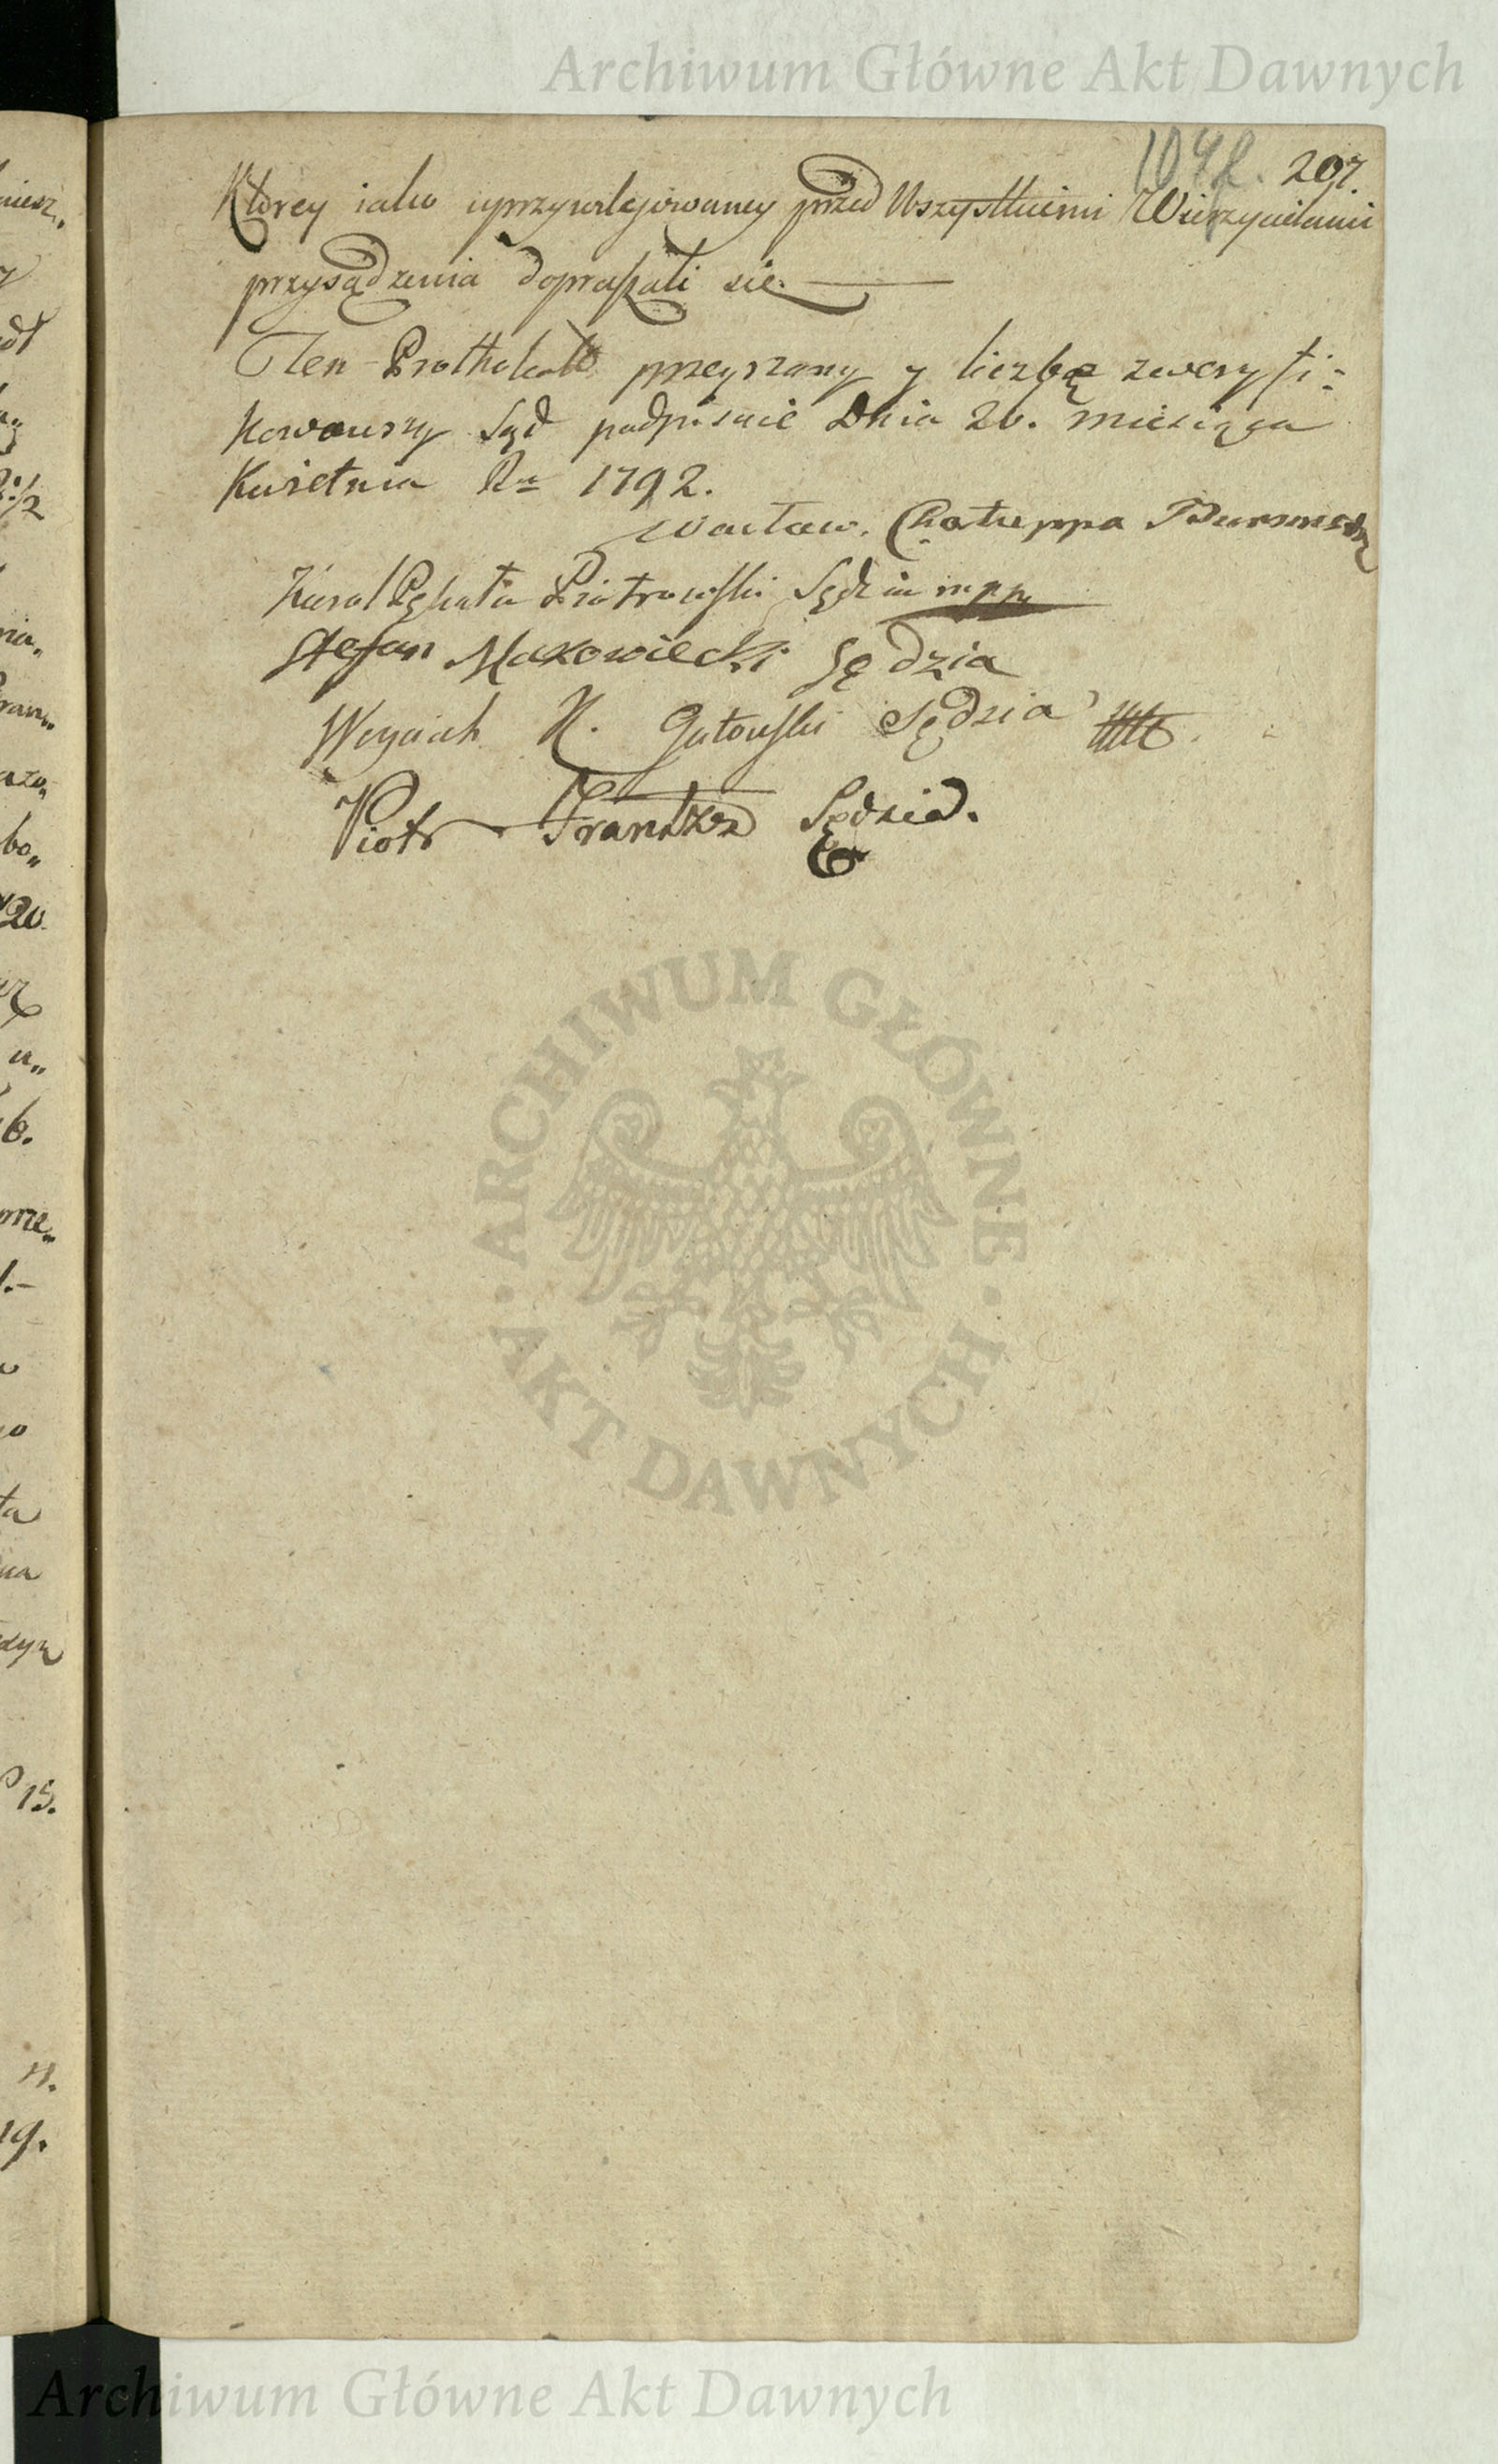 Archiwum Główne Akt Dawnych
104
207.
Ktorey iako uprzywilejowaney przed Wszystkiemi Wierzycielami
przysądzenia dopraszali się.
Ten Prothokoł przeyrzany y liczbę zweryfi=
kowawszy Sąd podpisuie Dnia 26. miesiąca
Kwietnia Ru 1792.
Wacław. Chałuppa
Karol Pękala Piotrowski Sędzia mpp
Stefan Makowiecki Sędzia
Woyciech K. Gutowski Sędzia
Piotr Sędzia.
ARCHIWUM GŁÓWNE
AKT DAWNYCH
niesz„
bo„
20.
u„
6.
rze„
15.
19.
Archiwum Główne Akt Dawnych